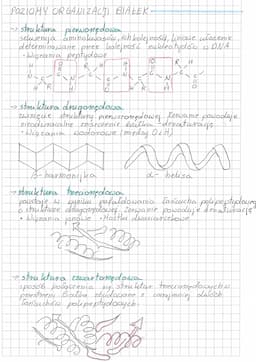 POZIOMY ORGANIZACJI BIAŁEK
→ struktura pierwszorzędowa
sekwencja aminokwasów, ich kolejność, liniowe ułożenie
determinowane przez kolejność nukleotydów w DNA
• Wiązania peptydowe
→ struktura drugorzędowa
zwinięcie struktury pierwszorzędowej. Zerwanie powoduje
denaturację
• Wiązania wodorowe (między O i H)
β-harmonijka
α-helisa
→ struktura trzeciorzędowa
powstaje w wyniku pofałdowania łańcucha polipeptydowego
o strukturze drugorzędowej, zerwanie powoduje denaturację
• Wiązania jonowe • Mostki dwusiarczkowe
→ struktura czwartorzędowa
sposób połączenia się struktur trzeciorzędowych w
przestrzeni. Białka zbudowane z co najmniej dwóch
łańcuchów polipeptydowych